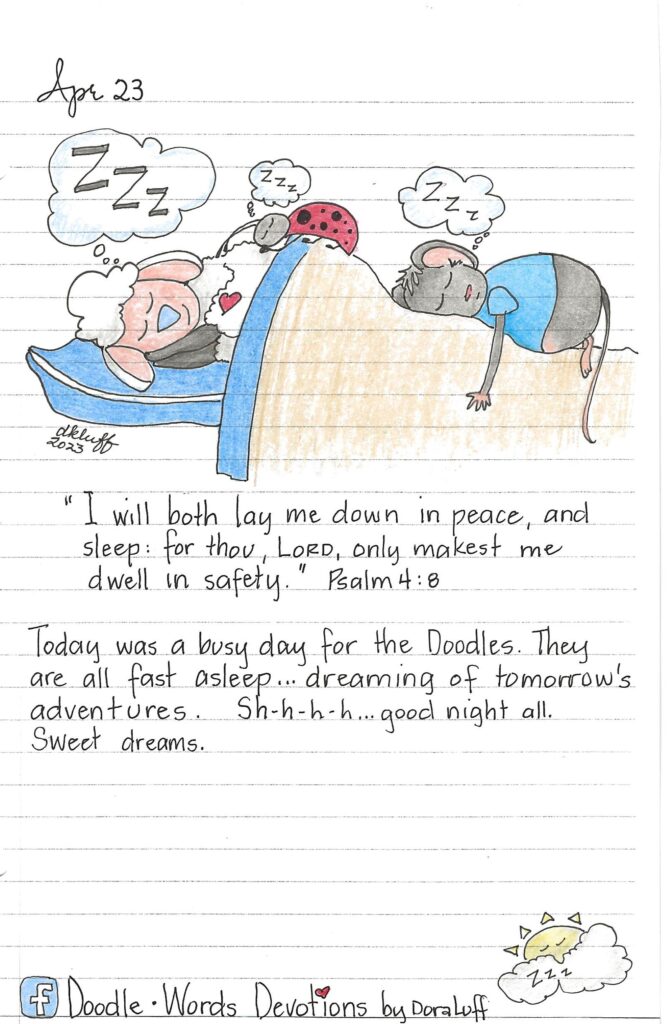 Apr 23
Z Z Z
Z Z Z
Z Z Z
dkluff
2023
"I will both lay me down in peace, and
sleep: for thou, LORD, only makest me
dwell in safety." Psalm 4:8
Today was a busy day for the Doodles. They
are all fast asleep... dreaming of tomorrow's
adventures. Sh-h-h-h... good night all.
Sweet dreams.
Z Z Z
f Doodle · Words Devotions by Dora Luff